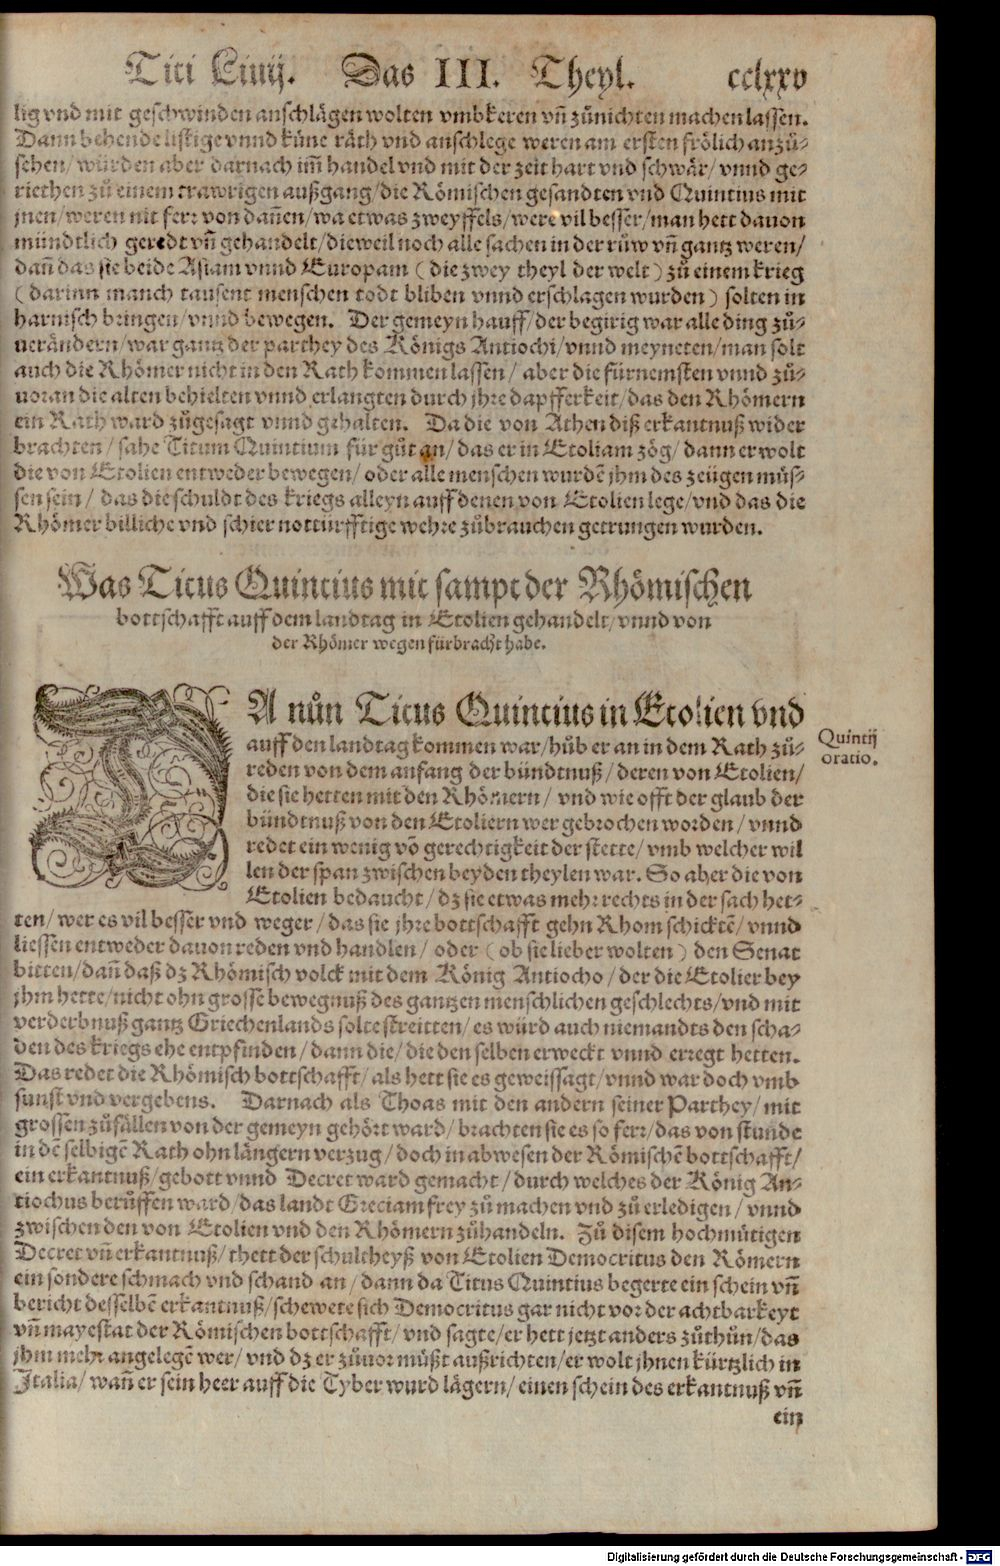 Titi Liuij. Das III. Theyl. cclxxv
lig vnd mit geschwinden anschlägen wolten vmbkeren vñ zůnichten machen lassen.
Dann behende listige vnnd küne räth vnd anschlege weren am ersten frölich anzů-
sehen/ würden aber darnach im̃ handel vnd mit der zeit hart vnd schwär/ vnnd ge-
riethen zů einem trawrigen außgang/ die Römischen gesandten vnd Quintius mit
jnen/ weren nit ferr von dañen/ wa etwas zweyffels/ were vil besser/ man hett dauon
mündtlich geredt vñ gehandelt/ dieweil noch alle sachen in der růw vñ gantz weren/
dañ das sie beide Asiam vnnd Europam ( die zwey theyl der welt ) zů einem krieg
( darinn manch tausent menschen todt bliben vnnd erschlagen wurden ) solten in
harnisch bringen/ vnnd bewegen. Der gemeyn hauff/ der begirig war alle ding zů-
uerändern/ war gantz der parthey des Königs Antiochi/ vnnd meyneten/ man solt
auch die Rhömer nicht in den Rath kommen lassen/ aber die fürnemsten vnnd zů-
uoran die alten behielten vnnd erlangten durch jhre dapfferkeit/ das den Rhömern
ein Rath ward zůgesagt vnnd gehalten. Da die von Athen diß erkantnuß wider
brachten/ sahe Titum Quintium für gůt an/ das er in Etoliam zög/ dann er wolt
die von Etolien entweder bewegen/ oder alle menschen wurdẽ jhm des zeügen müs-
sen sein/ das die schuldt des kriegs alleyn auff denen von Etolien lege/ vnd das die
Rhömer billiche vnd schier nottürfftige wehre zůbrauchen getrungen wurden.
Was Titus Quintius mit sampt der Rhömischen
bottschafft auff dem landtag in Etolien gehandelt/ vnnd von
der Rhömer wegen fürbracht habe.
DA nůn Titus Quintius in Etolien vnd
auff den landtag kommen war/ hůb er an in dem Rath zů-
reden von dem anfang der bündtnuß/ deren von Etolien/
die sie hetten mit den Rhömern/ vnd wie offt der glaub der
bündtnuß von den Etoliern wer gebrochen worden/ vnnd
redet ein wenig võ gerechtigkeit der stette/ vmb welcher wil
len der span zwischen beyden theylen war. So aber die von
Etolien bedaucht/ dz sie etwas mehr rechts in der sach het-
Quintij
oratio.
ten/ wer es vil besser vnd weger/ das sie jhre bottschafft gehn Rhom schicktẽ/ vnnd
liessen entweder dauon reden vnd handlen/ oder ( ob sie lieber wolten ) den Senat
bitten/ dañ daß dz Rhömisch volck mit dem König Antiocho/ der die Etolier bey
jhm hette/ nicht ohn grosse bewegnuß des gantzen menschlichen geschlechts/ vnd mit
verderbnuß gantz Griechenlands solte streitten/ es würd auch niemandts den scha-
den des kriegs ehe entpfinden/ dann die/ die den selben erweckt vnnd erregt hetten.
Das redet die Rhömisch bottschafft/ als hett sie es geweissagt/ vnnd war doch vmb
sunst vnd vergebens. Darnach als Thoas mit den andern seiner Parthey/ mit
grossen zůfällen von der gemeyn gehört ward/ brachten sie es so ferr/ das von stunde
in dẽ selbigẽ Rath ohn längern verzug/ doch in abwesen der Römischẽ bottschafft/
ein erkantnuß/ gebott vnnd Decret ward gemacht/ durch welches der König An-
tiochus berůffen ward/ das landt Greciam frey zů machen vnd zů erledigen/ vnnd
zwischen den von Etolien vnd den Rhömern zůhandeln. Zů disem hochmütigen
Decret vñ erkantnuß/ thett der schultheyß von Etolien Democritus den Römern
ein sondere schmach vnd schand an/ dann da Titus Quintius begerte ein schein vñ
bericht desselbẽ erkantnuß/ schewete sich Democritus gar nicht vor der achtbarkeyt
vñ mayestat der Römischen bottschafft/ vnd sagte/ er hett jetzt anders zůthůn/ das
jhm mehr angelegẽ wer/ vnd dz er zůuor müßt außrichten/ er wolt jhnen kürtzlich in
Italia/ wañ er sein heer auff die Tyber wurd lägern/ einen schein des erkantnuß vñ
ein
Digitalisierung gefördert durch die Deutsche Forschungsgemeinschaft - DFG